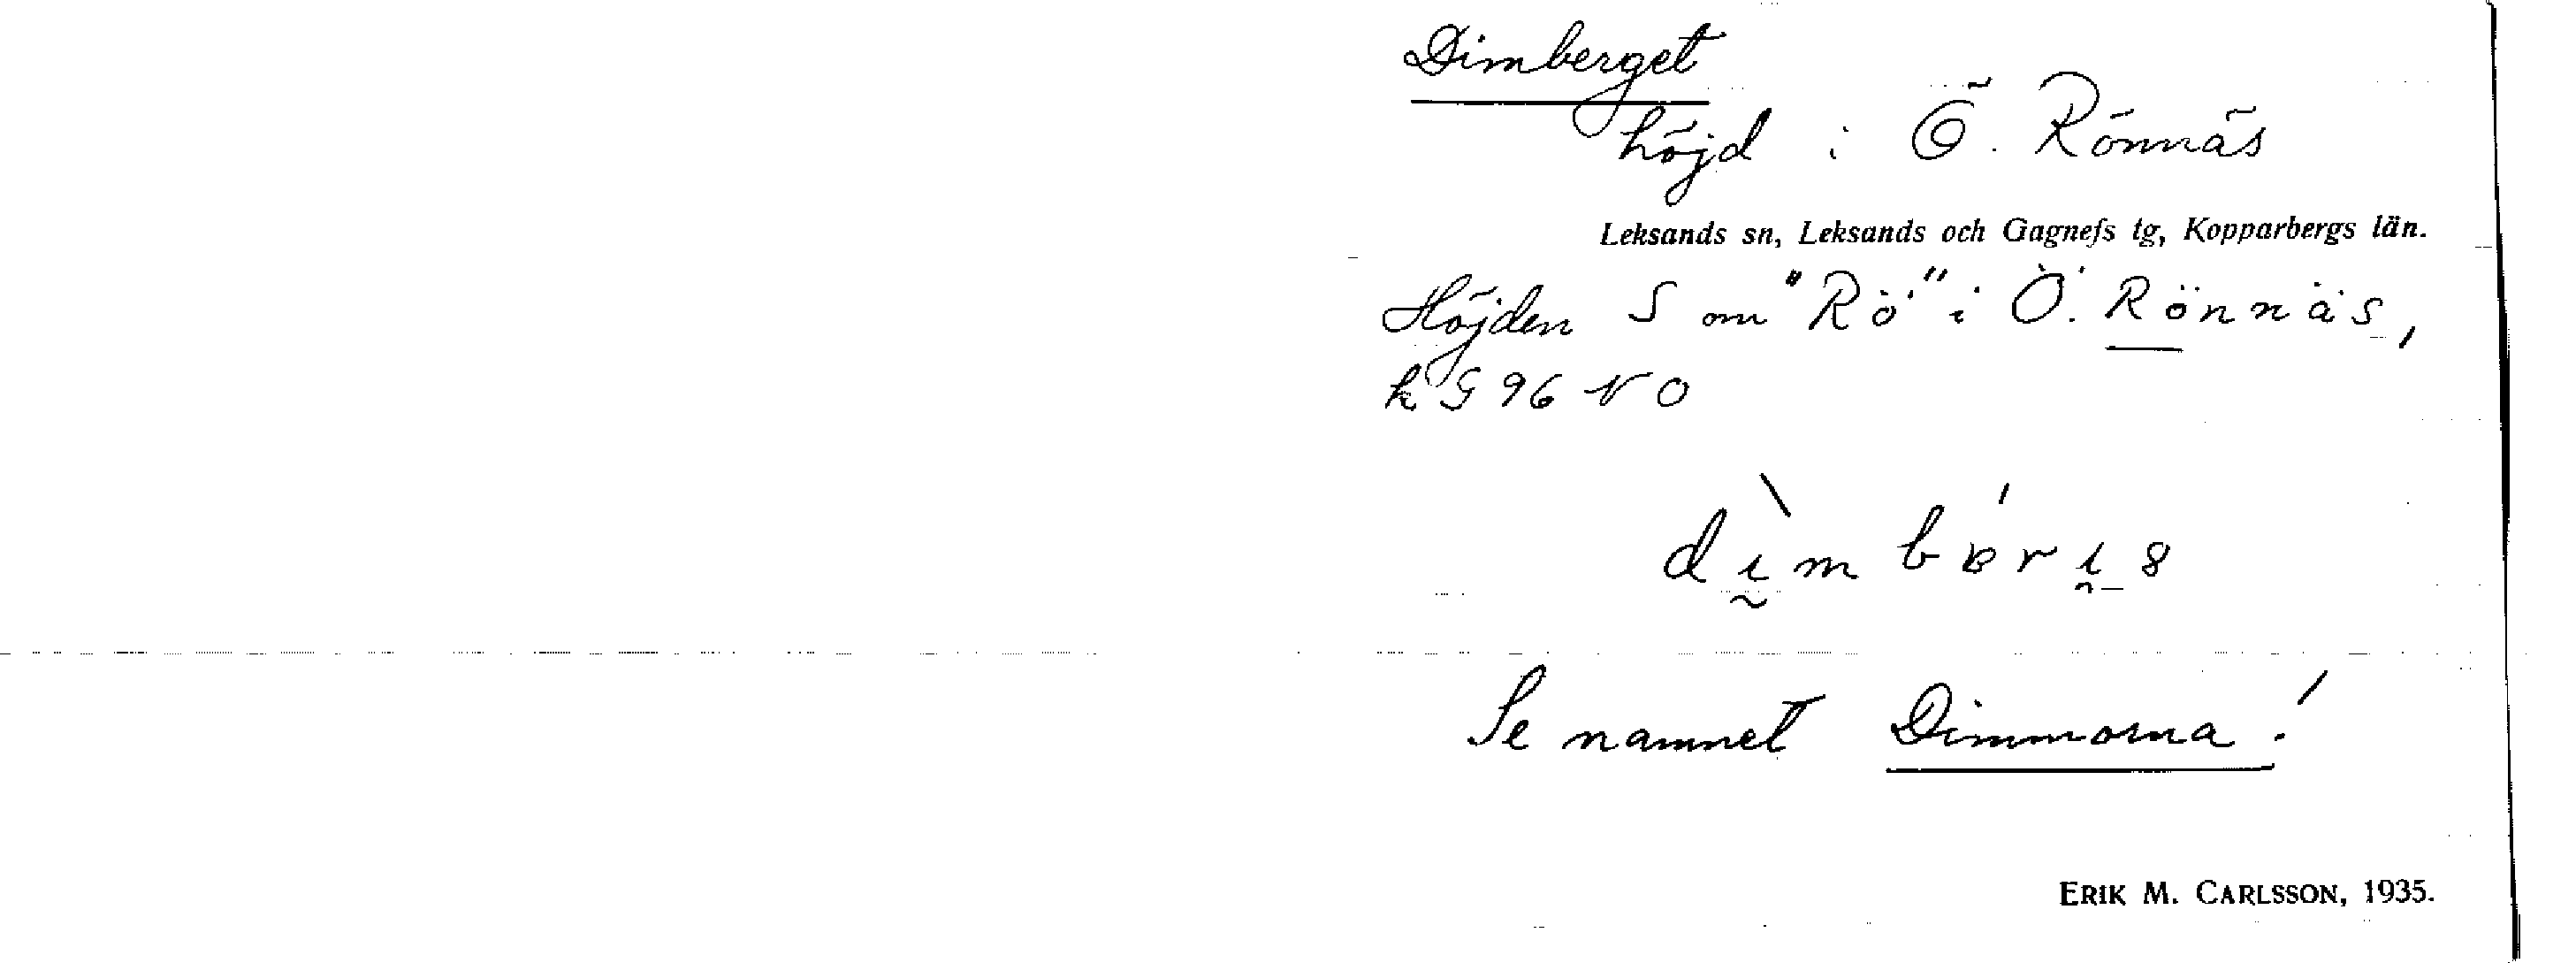 Dimberget
höjd i Ö. Rönnäs
Leksands sn, Leksands och Gagnefs tg, Kopparbergs län.
Höjden S om "Rö" i Ö. Rönnäs,
k G 96 NO
Se namnet Dimmorna!
ERIK M. CARLSSON, 1935.